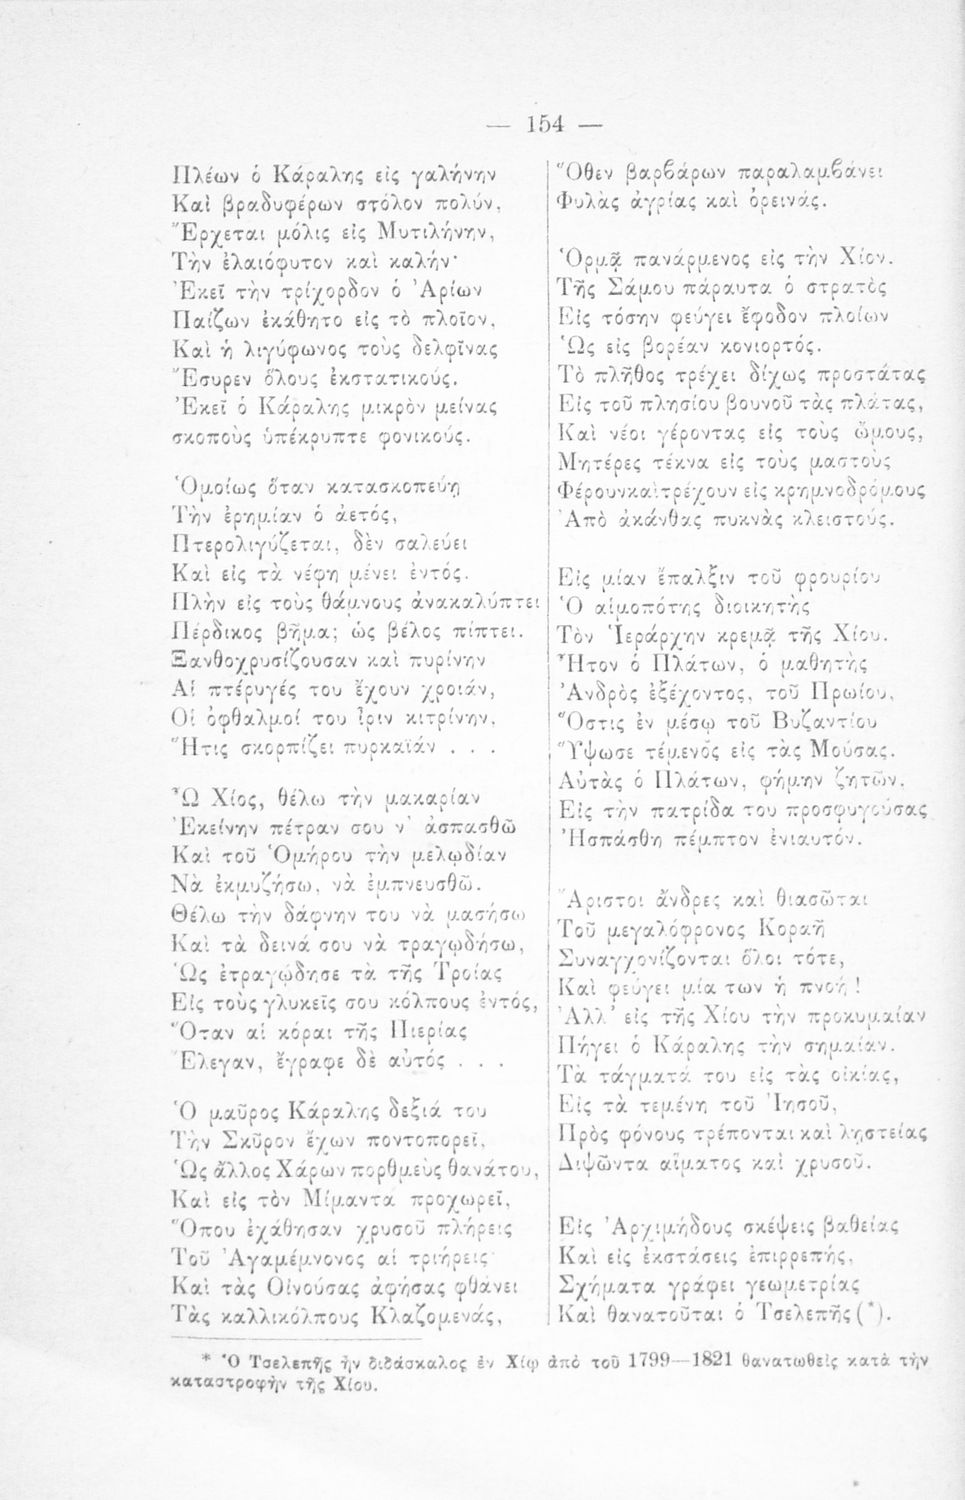 — 154 —
Πλέων ὁ Κάραλης εἰς γαλήνην
Καὶ βραδυφέρων στόλον πολύν,
Ἔρχεται μόλις εἰς Μυτιλήνην,
Τὴν ἐλαιόφυτον καὶ καλήν·
Ἐκεῖ τὴν τρίχορδον ὁ Ἀρίων
Παίζων ἐκάθητο εἰς τὸ πλοῖον,
Καὶ ἡ λιγύφωνος τοὺς δελφῖνας
Ἔσυρεν ὅλους ἐκστατικούς.
Ἐκεῖ ὁ Κάραλης μικρὸν μείνας
σκοποὺς ὑπέκρυπτε φονικούς.
Ὁμοίως ὅταν κατασκοπεύῃ
Τὴν ἐρημίαν ὁ ἀετός,
Πτερολιγύζεται, δὲν σαλεύει
Καὶ εἰς τὰ νέφη μένει ἐντός.
Πλὴν εἰς τοὺς θάμνους ἀνακαλύπτει
Πέρδικος βῆμα; ὡς βέλος πίπτει.
Ξανθοχρυσίζουσαν καὶ πυρίνην
Αἱ πτέρυγές του ἔχουν χροιάν,
Οἱ ὀφθαλμοί του ἶριν κιτρίνην,
Ἥτις σκορπίζει πυρκαϊάν . . .
Ὦ Χίος, θέλω τὴν μακαρίαν
Ἐκείνην πέτραν σου ν' ἀσπασθῶ
Καὶ τοῦ Ὁμήρου τὴν μελῳδίαν
Νὰ ἐκμυζήσω, νὰ ἐμπνευσθῶ.
Θέλω τὴν δάφνην του νὰ μασήσω
Καὶ τὰ δεινά σου νὰ τραγῳδήσω,
Ὡς ἐτραγῴδησε τὰ τῆς Τροίας
Εἰς τοὺς γλυκεῖς σου κόλπους ἐντός,
Ὅταν αἱ κόραι τῆς Πιερίας
Ἔλεγαν, ἔγραφε δὲ αὐτός . . .
Ὁ μαῦρος Κάραλης δεξιά του
Τὴν Σκῦρον ἔχων ποντοπορεῖ,
Ὡς ἄλλος Χάρων πορθμεὺς θανάτου,
Καὶ εἰς τὸν Μίμαντα προχωρεῖ,
Ὅπου ἐχάθησαν χρυσοῦ πλήρεις
Τοῦ Ἀγαμέμνονος αἱ τριήρεις·
Καὶ τὰς Οἰνούσας ἀφήσας φθάνει
Τὰς καλλικόλπους Κλαζομενάς,
Ὅθεν βαρβάρων παραλαμβάνει
Φυλὰς ἀγρίας καὶ ὀρεινάς.
Ὁρμᾷ πανάρμενος εἰς τὴν Χίον.
Τῆς Σάμου πάραυτα ὁ στρατὸς
Εἰς τόσην φεύγει ἔφοδον πλοίων
Ὡς εἰς βορέαν κονιορτός.
Τὸ πλῆθος τρέχει δίχως προστάτας
Εἰς τοῦ πλησίου βουνοῦ τὰς πλάτας,
Καὶ νέοι γέροντας εἰς τοὺς ὤμους,
Μητέρες τέκνα εἰς τοὺς μαστοὺς
Φέρουν καὶ τρέχουν εἰς κρημνοδρόμους
Ἀπὸ ἀκάνθας πυκνὰς κλειστούς.
Εἰς μίαν ἔπαλξιν τοῦ φρουρίου
Ὁ αἱμοπότης διοικητὴς
Τὸν Ἱεράρχην κρεμᾷ τῆς Χίου.
Ἦτον ὁ Πλάτων, ὁ μαθητὴς
Ἀνδρὸς ἐξέχοντος, τοῦ Πρωίου,
Ὅστις ἐν μέσῳ τοῦ Βυζαντίου
Ὕψωσε τέμενος εἰς τὰς Μούσας.
Αὐτὰς ὁ Πλάτων, φήμην ζητῶν,
Εἰς τὴν πατρίδα του προσφυγούσας
Ἠσπάσθη πέμπτον ἐνιαυτόν.
Ἄριστοι ἄνδρες καὶ θιασῶται
Τοῦ μεγαλόφρονος Κοραῆ
Συναγχονίζονται ὅλοι τότε,
Καὶ φεύγει μία των ἡ πνοή!
Ἀλλ' εἰς τῆς Χίου τὴν προκυμαίαν
Πήγει ὁ Κάραλης τὴν σημαίαν.
Τὰ τάγματά του εἰς τὰς οἰκίας,
Εἰς τὰ τεμένη τοῦ Ἰησοῦ,
Πρὸς φόνους τρέπονται καὶ λῃστείας
Διψῶντα αἵματος καὶ χρυσοῦ.
Εἰς Ἀρχιμήδους σκέψεις βαθείας
Καὶ εἰς ἐκστάσεις ἐπιρρεπής,
Σχήματα γράφει γεωμετρίας
Καὶ θανατοῦται ὁ Τσελεπῆς(*).
* Ὁ Τσελεπῆς ἦν διδάσκαλος ἐν Χίῳ ἀπὸ τοῦ 1799—1821 θανατωθεὶς κατὰ τὴν
καταστροφὴν τῆς Χίου.